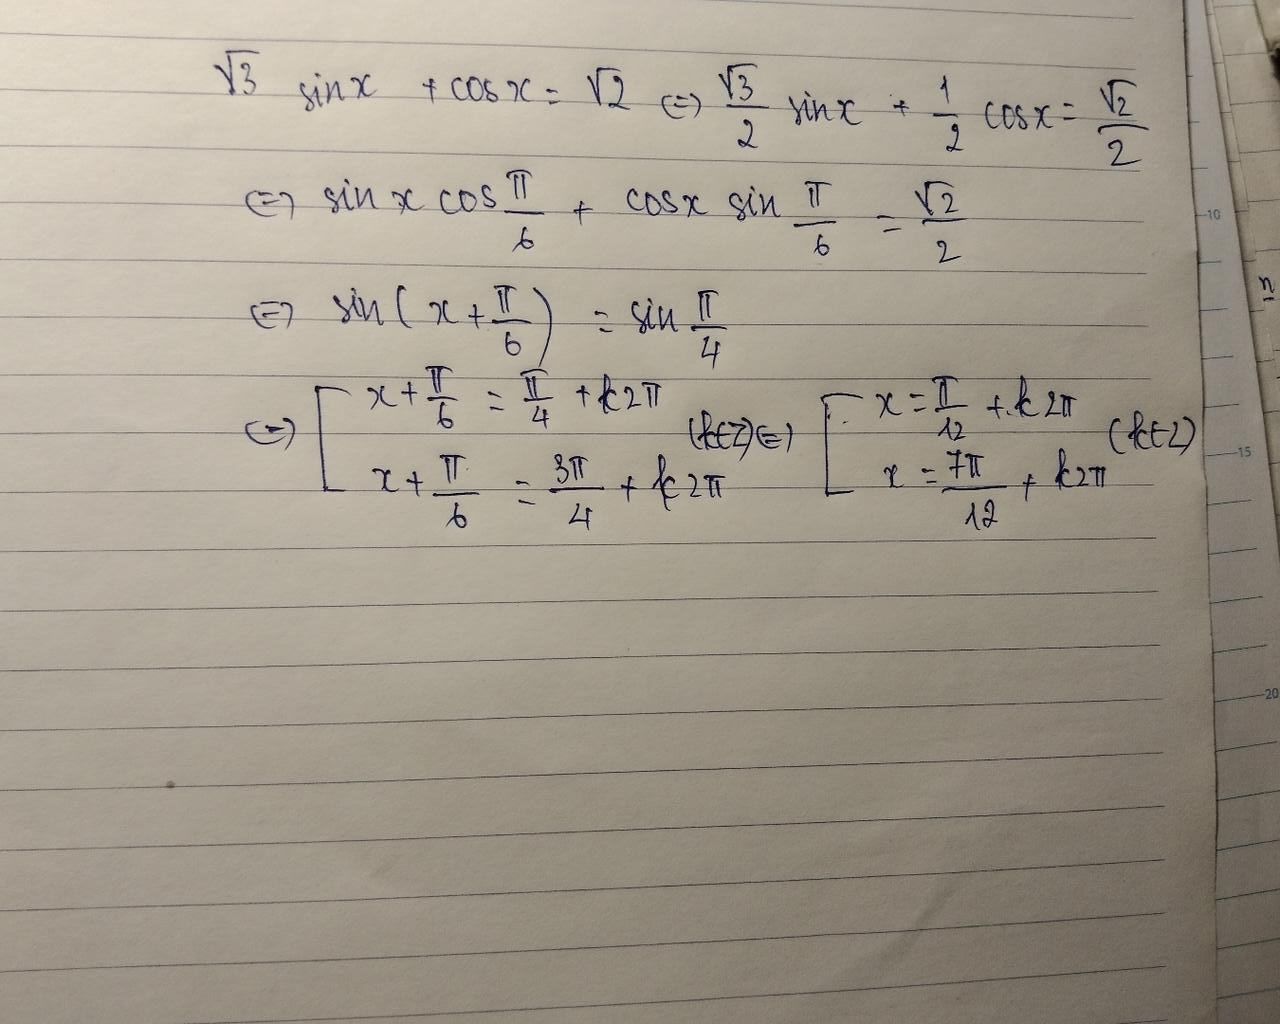 √3 sinx + cosx = √2 ⇔ √3/2 sinx + 1/2 cosx = √2/2
⇔ sin x cos π/6 + cosx sin π/6 = √2/2
⇔ sin(x + π/6) = sin π/4
⇔ [ x + π/6 = π/4 + k2π
x + π/6 = 3π/4 + k2π (k∈Z) ⇔ [ x = π/12 + k2π
x = 7π/12 + k2π (k∈Z)
10
n
15
20